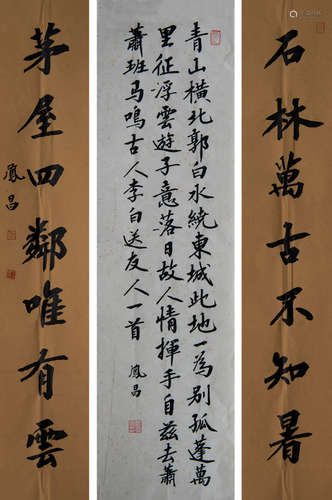 石林萬古不知暑
青山橫北郭白水繞東城此地一為別孤蓬萬
里征浮雲遊子意落日故人情揮手自兹去蕭
蕭班馬鳴古人李白送友人一首 鳳昌
茅屋四鄰唯有雲
鳳昌